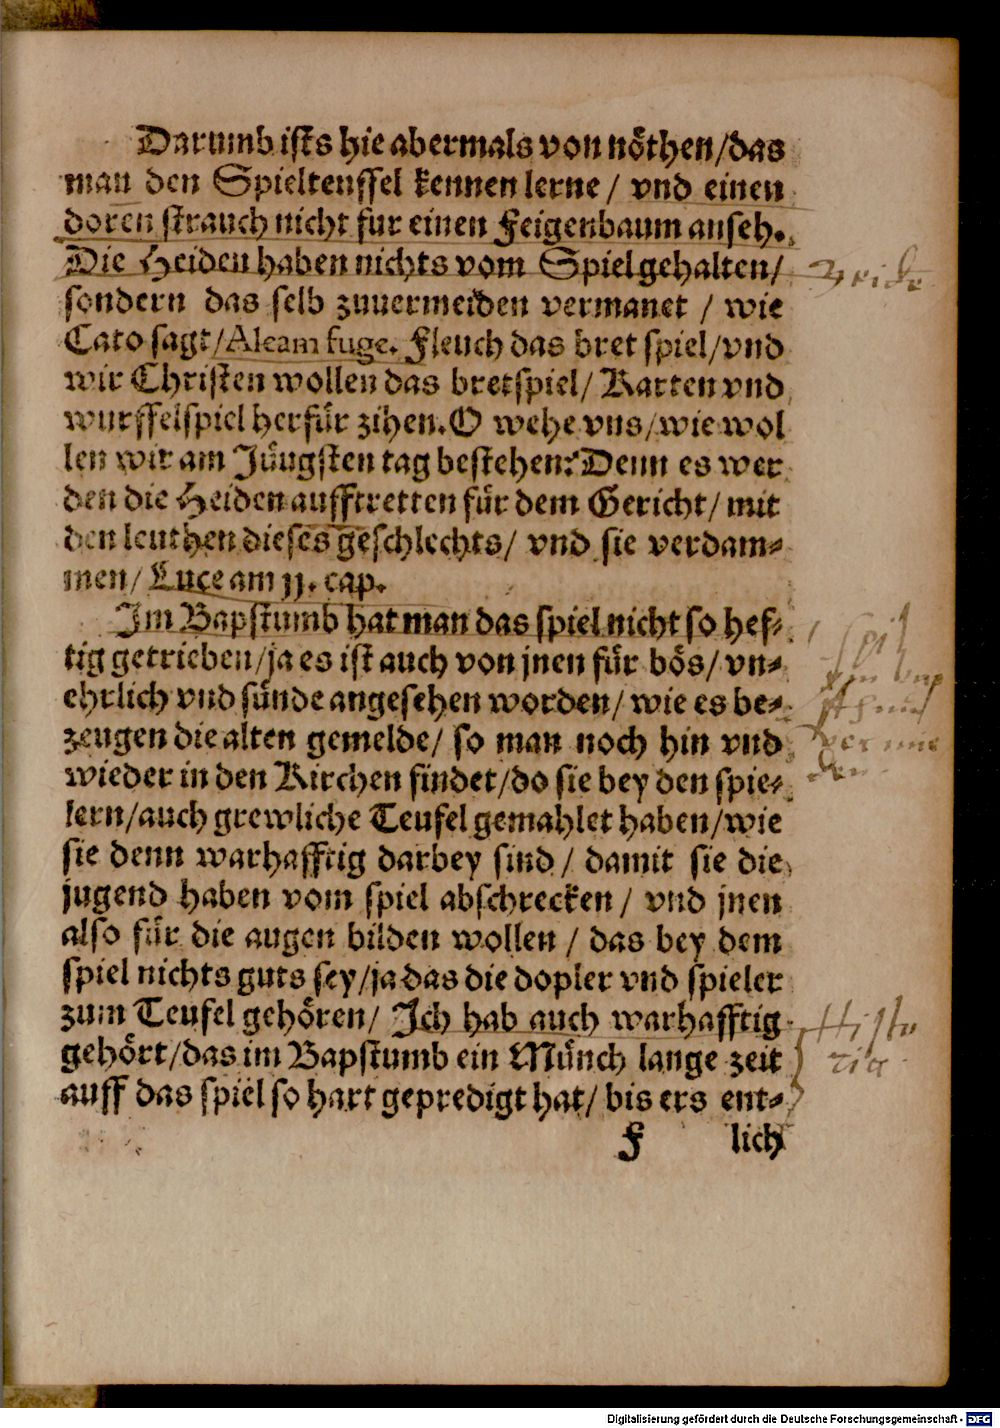 Darumb ists hie abermals von nöthen/das
man den Spielteuffel kennen lerne / vnd einen
doren strauch nicht fur einen Feigenbaum anseh.
Die Heiden haben nichts vom Spiel gehalten/
sondern das selb zuuermeiden vermanet / wie
Cato sagt/Aleam fuge. Fleuch das bret spiel/vnd
wir Christen wollen das bretspiel/ Karten vnd
wurffelspiel herfür zihen. O wehe vns/wie wol
len wir am Jüngsten tag bestehen? Denn es wer
den die Heiden aufftretten für dem Gericht/ mit
den leuthen dieses geschlechts/ vnd sie verdam-
men/ Luce am 11. cap.
Im Bapstumb hat man das spiel nicht so hef-
tig getrieben/ja es ist auch von jnen für bös/ vn-
ehrlich vnd sünde angesehen worden/ wie es be-
zeugen die alten gemelde/ so man noch hin vnd
wieder in den Kirchen findet/do sie bey den spie-
lern/auch grewliche Teufel gemahlet haben/wie
sie denn warhafftig darbey sind / damit sie die
jugend haben vom spiel abschrecken / vnd jnen
also für die augen bilden wollen / das bey dem
spiel nichts guts sey/ja das die dopler vnd spieler
zum Teufel gehören/ Ich hab auch warhafftig
gehört/das im Bapstumb ein Münch lange zeit
auff das spiel so hart gepredigt hat/ bis ers ent-
F lich
Heide
Spil
Histo
ria
Digitalisierung gefördert durch die Deutsche Forschungsgemeinschaft - DFG